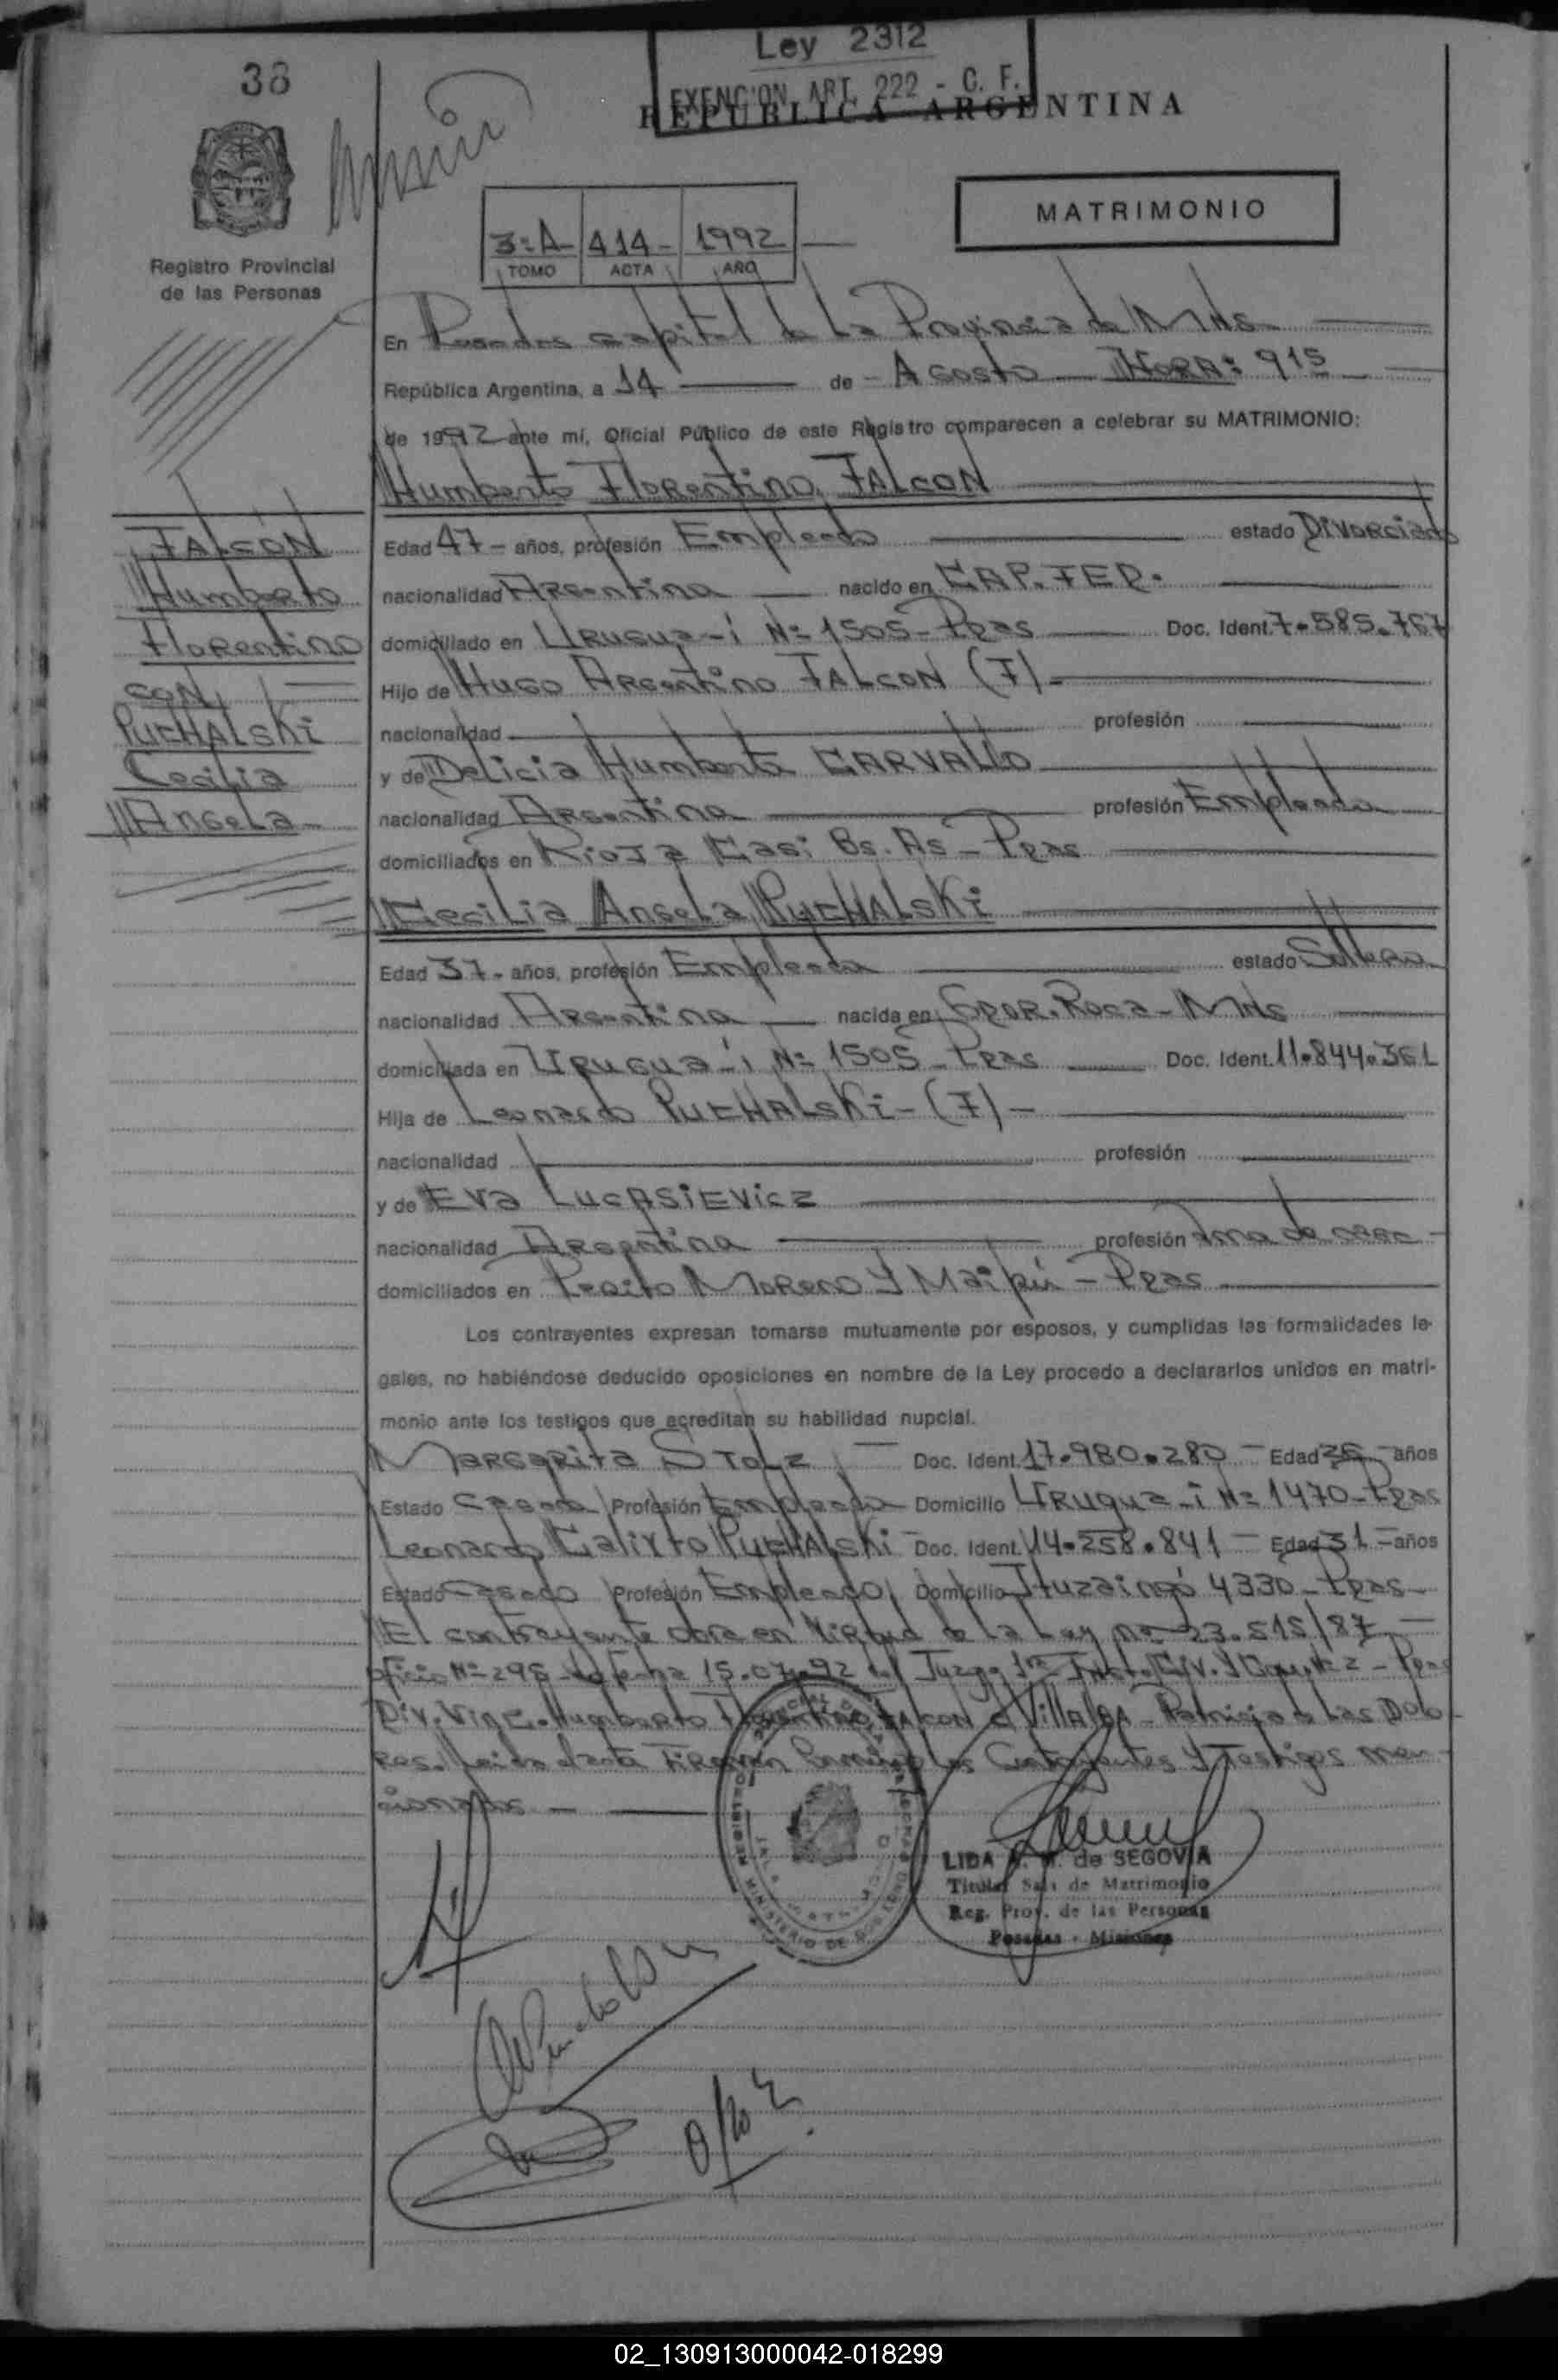 38
Ley 2312
EXENCION ART. 222 - C. F.
REPUBLICA ARGENTINA
Registro Provincial
de las Personas
MATRIMONIO
3:A 414- 1992
TOMO ACTA AÑO
En Posadas capital de La Provincia de Mnes
República Argentina, a 14 de - Agosto HORA: 915
de 1992 ante mí, Oficial Público de este Registro comparecen a celebrar su MATRIMONIO:
Humberto Florentino FALCON
Edad 47 - años, profesión Empleado estado Divorciado
nacionalidad Argentina nacido en CAP. FED.
domiciliado en Urugua-i Nº 1505 - Pdas Doc. Ident. 7.585.767
Hijo de Hugo Argentino FALCON (F) -
nacionalidad profesión
y de Delicia Humberta CARVALLO
nacionalidad Argentina profesión Empleada
domiciliados en Rioja Casi Bs. As - Pdas
Cecilia Angela PUCHALSKi
Edad 37 - años, profesión Empleada estado Soltera
nacionalidad Argentina nacida en Gdor. Roca - Mnes
domiciliada en Urugua-i Nº 1505 - Pdas Doc. Ident. 11.844.361
Hija de Leonardo PUCHALSKi - (F) -
nacionalidad profesión
y de Eva LUCASiEVicz
nacionalidad Argentina profesión Ama de casa
domiciliados en Perito Moreno y Maipú - Pdas
Los contrayentes expresan tomarse mutuamente por esposos, y cumplidas las formalidades le-
gales, no habiéndose deducido oposiciones en nombre de la Ley procedo a declararlos unidos en matri-
monio ante los testigos que acreditan su habilidad nupcial.
Margarita STOLZ Doc. Ident. 17.980.280 - Edad 26 - años
Estado Casada Profesión Empleada Domicilio Urugua-i Nº 1470 - Pdas
Leonardo Calixto PUCHALSKi Doc. Ident. 14.258.841 - Edad 31 - años
Estado Casado Profesión Empleado Domicilio Ituzaingó 4330 - Pdas -
El contrayente obra en Virtud de la Ley Nº 23.515/87 -
oficio Nº 295 de fecha 15.07.92 del Juzg. 1ra Inst. Civ. y - Pdas
Div. Vinc. Humberto Florentino FALCON c/ Villalba - Patricia de Las Dolo-
res. Leída el acta Firman Conmigo los Contrayentes y Testigos men-
cionados -
FALCON
Humberto
Florentino
CON
PUCHALSKi
Cecilia
Angela
LIDA de SEGOVIA
Titular Sala de Matrimonio
Reg. Prov. de las Personas
Posadas - Misiones
02_130913000042-018299